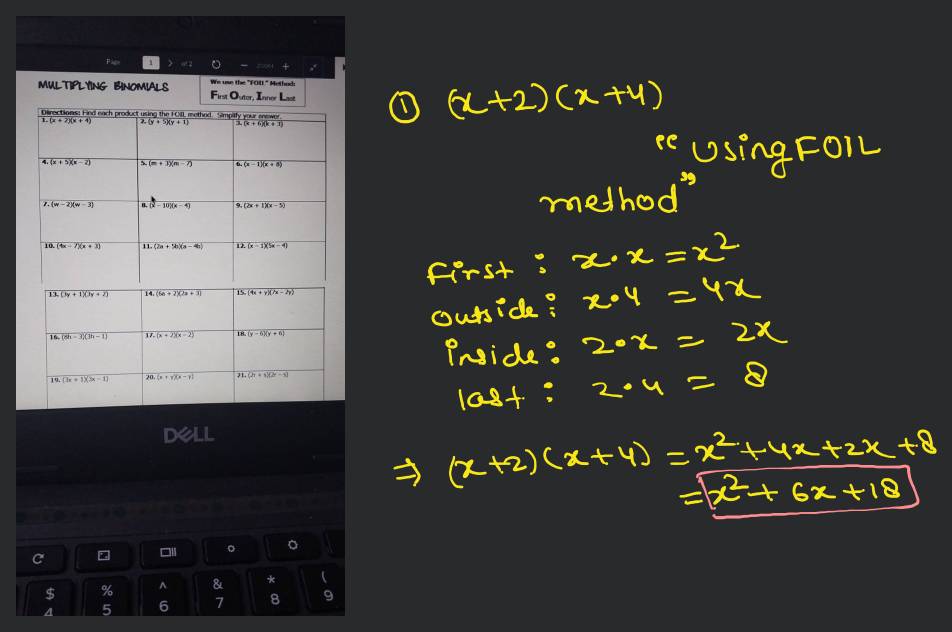 Page 1 > of 2 ZOOM +
MULTIPLYING BINOMIALS
We use the "FOIL" Method:
First Outer, Inner Last
Directions: Find each product using the FOIL method. Simplify your answer.
1. (x + 2)(x + 4) 2. (y + 5)(y + 1) 3. (k + 6)(k + 3)
4. (x + 5)(x – 2) 5. (m + 3)(m – 7) 6. (x – 1)(x + 8)
7. (w – 2)(w – 3) 8. (x – 10)(x – 4) 9. (2x + 1)(x – 5)
10. (4x – 7)(x + 3) 11. (2a + 5b)(a – 4b) 12. (x – 1)(5x – 4)
13. (3y + 1)(3y + 2) 14. (6a + 2)(2a + 3) 15. (4x + y)(7x – 2y)
16. (8h – 3)(3h – 1) 17. (x + 2)(x – 2) 18. (y – 6)(y + 6)
19. (3x + 1)(3x – 1) 20. (x + y)(x – y) 21. (2r + s)(2r – s)
DELL
$ % ^ & * (
4 5 6 7 8 9
① (x+2)(x+4)
"Using FOIL
method"
First : x·x = x²
outside : x·4 = 4x
inside : 2·x = 2x
last : 2·4 = 8
⇒ (x+2)(x+4) = x²+4x+2x+8
= x²+6x+18